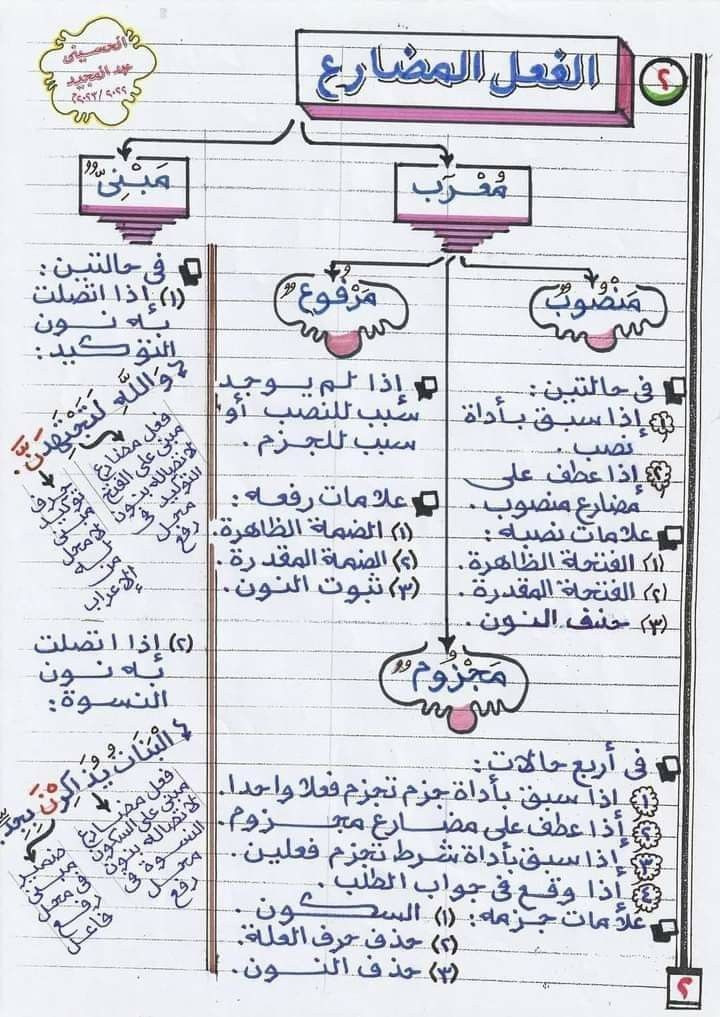 ٢
الفعل المضارع
الحسينى
عبد المجيد
٢٠٢٢ / ٢٠٢٣م
مُعْرَب
مَبْنِىٌّ
مَنْصُوبٌ
فى حالتين :
١ إذا سبق بأداة
نصب .
٢ إذا عطف على
مضارع منصوب .
علامات نصبه :
(١) الفتحة الظاهرة .
(٢) الفتحة المقدرة .
(٣) حذف النون .
مَرْفُوعٌ
إذا لم يوجد
سبب للنصب أو
سبب للجزم .
علامات رفعه :
(١) الضمة الظاهرة .
(٢) الضمة المقدرة .
(٣) ثبوت النون .
مَجْزُومٌ
فى أربع حالات :
١ إذا سبق بأداة جزم تجزم فعلا واحدا .
٢ إذا عطف على مضارع مجزوم .
٣ إذا سبق بأداة شرط تجزم فعلين .
٤ إذا وقع فى جواب الطلب .
علامات جزمه : (١) السكون .
(٢) حذف حرف العلة .
(٣) حذف النون .
فى حالتين :
(١) إذا اتصلت
به نون
التوكيد :
وَاللَّهِ لَتَجْتَهِدَنَّ .
فعل مضارع
مبنى على الفتح
لاتصاله بنون
التوكيد فى
محل
رفع
حرف
توكيد
مبنى
لا محل
له من
الإعراب
(٢) إذا اتصلت
به نون
النسوة :
الْبَنَاتُ يُذَاكِرْنَ بِجِدٍّ .
فعل مضارع
مبنى على السكون
لاتصاله بنون
النسوة فى
محل
رفع
ضمير
مبنى
فى محل
رفع
فاعل
٢